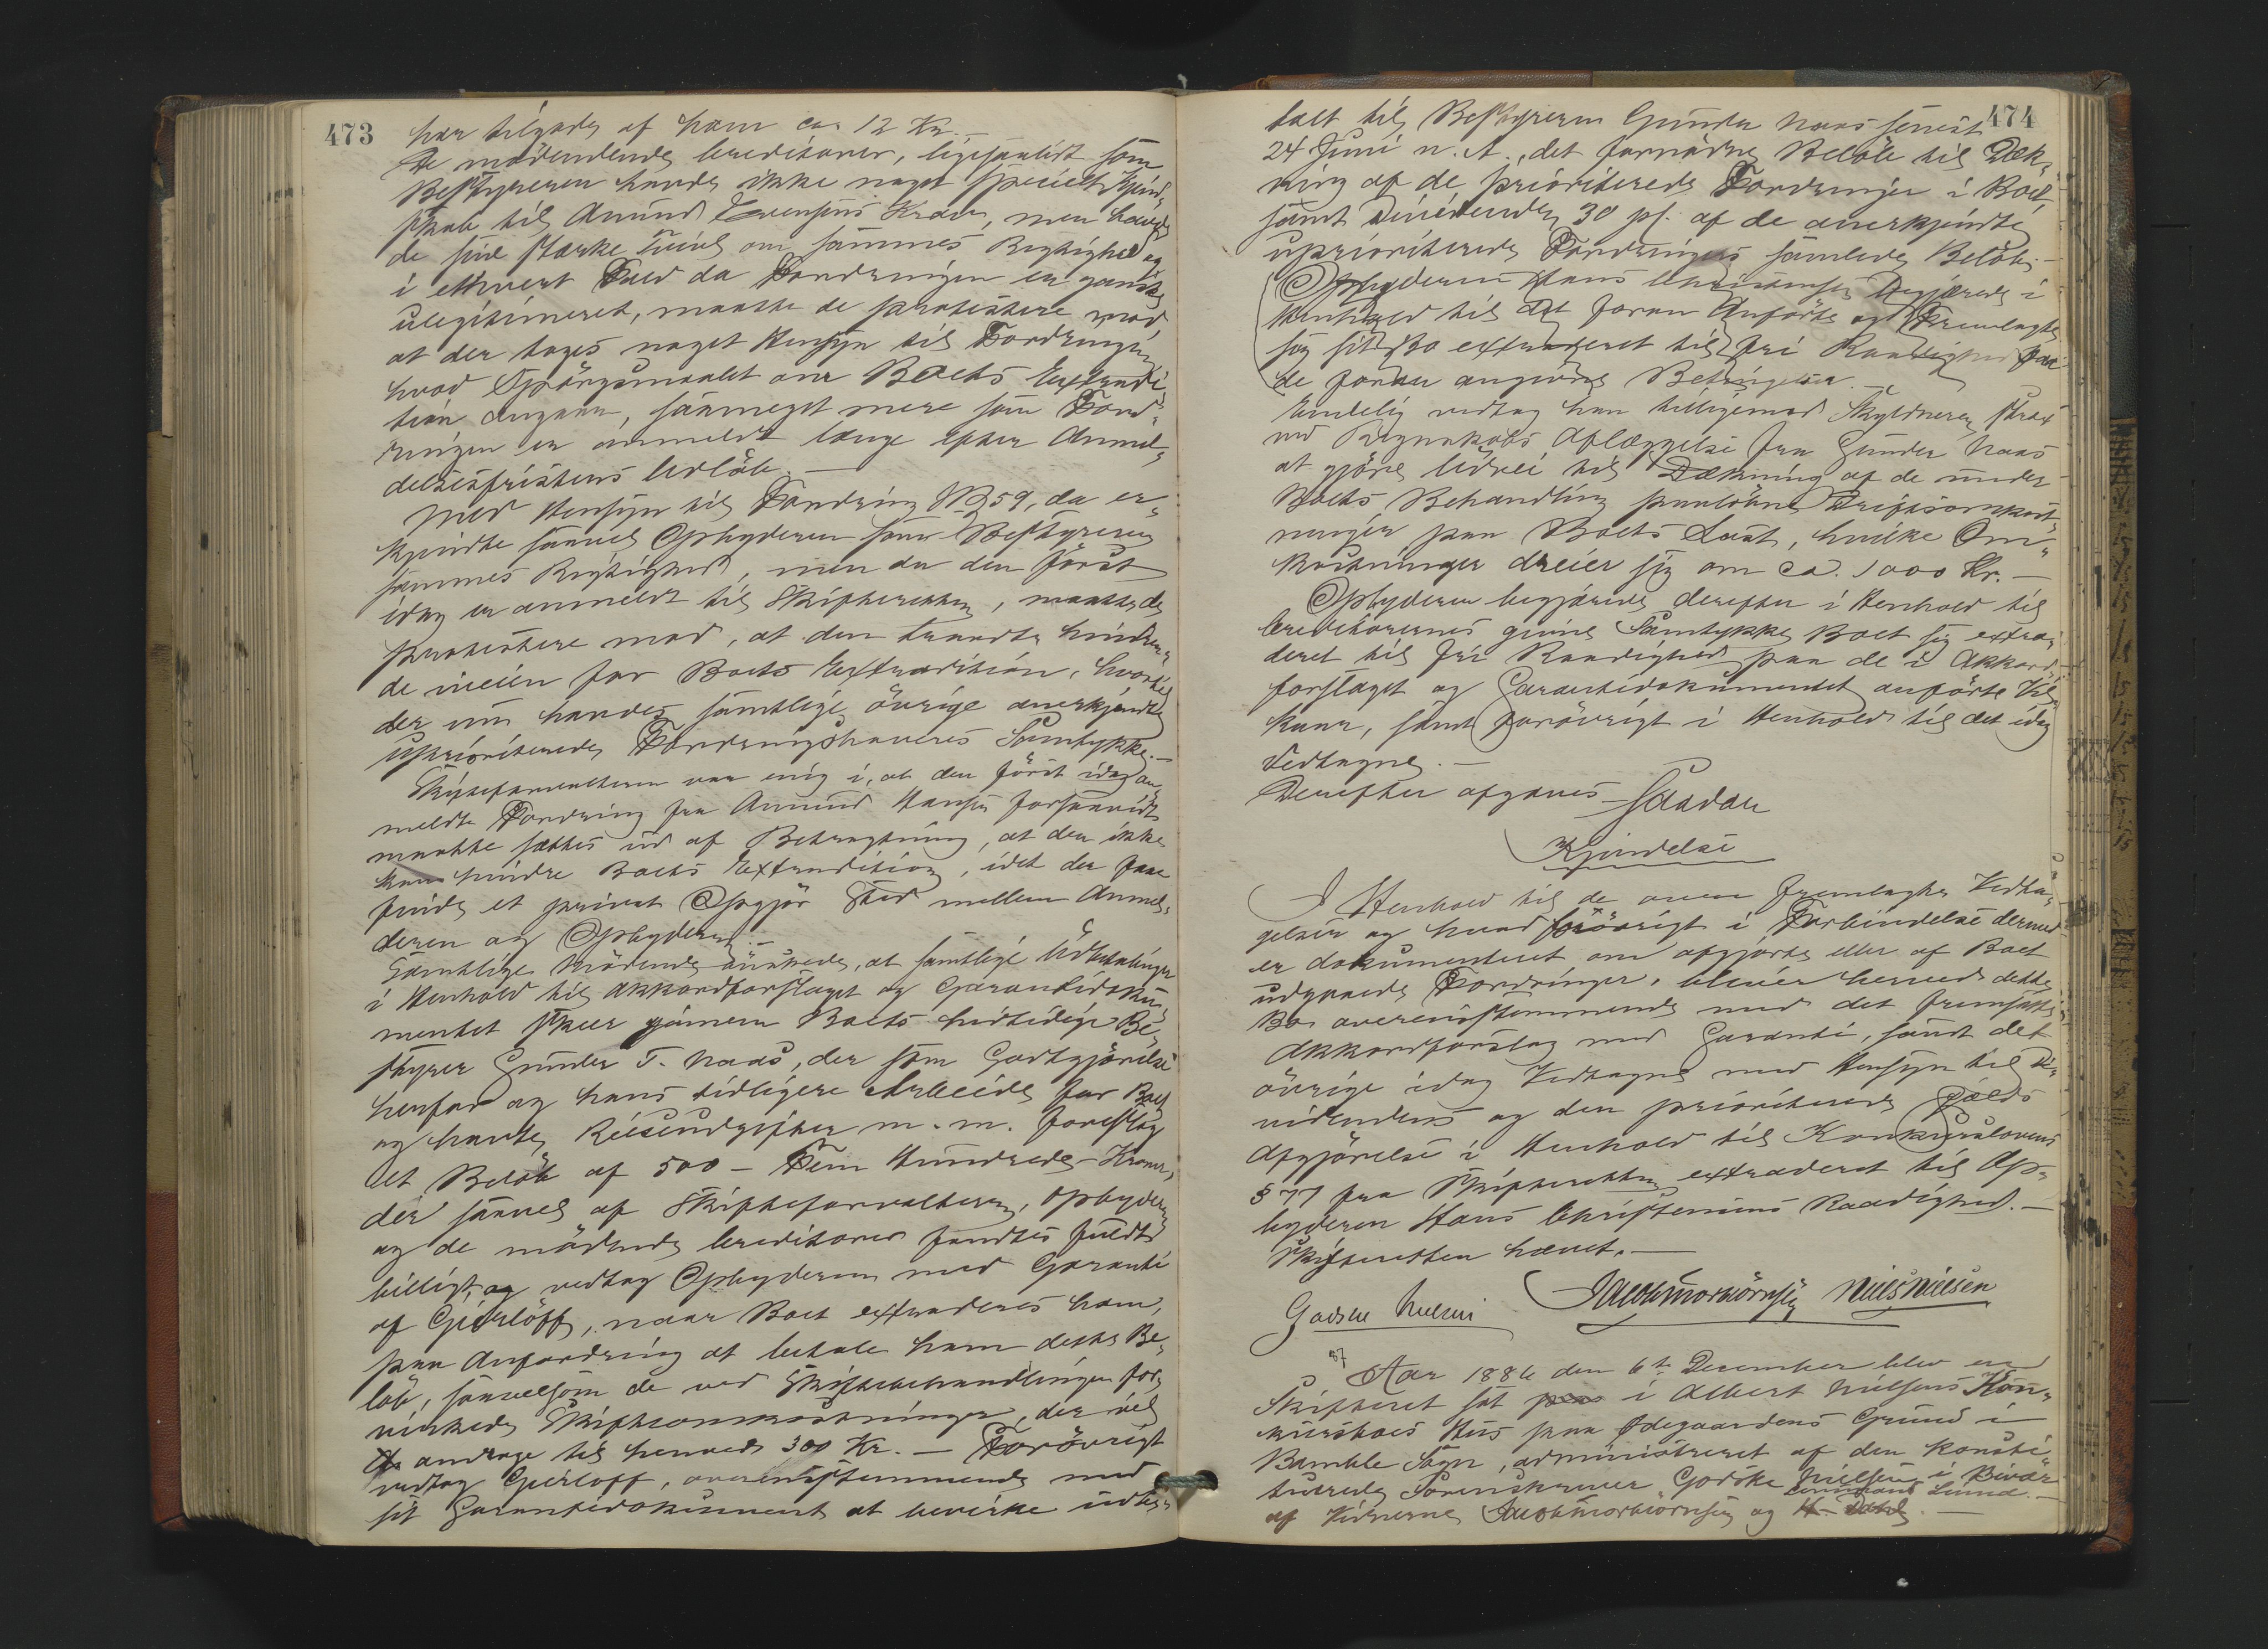 473
har tilgode af ham ca 12 Kr. —
De mødende Creditorer, ligesaalidt som
Bestyreren havde ikke noget specielt Kjend-
skab til Anund Evensens Krav, men havde
de sine stærke Tvivl om sammes Rigtighed og
i ethvert Fald da Fordringen er ganske
ulegitimeret, maatte de protestere mod
at der toges noget Hensyn til Fordringen
hvad Spörgsmaalet om Boets Extradi-
tion angaar, saameget mere som Ford-
ringen er anmeldt længe efter Anmel-
delsesfristens Udlöb. —
Med Hensyn til Fordring No 59, da er-
kjendte saavel Opbyderen som Bestyreren
sammes Rigtighed, men da den först
idag er anmeldt til Skifteretten, maatte de
protestere mod, at den traadte hindren-
de iveien for Boets Extradition, hvortil
der nu havdes samtlige övrige anerkjendte
uprioriterede Fordringshaveres Samtykke. —
Skifteforvalteren var enig i, at den först idag an-
meldte Fordring fra Anund Hansen forsaavidt
maatte sættes ud af Betragtning, at den ikke
kan hindre Boets Extradition, idet der faar
finde et privat Opgjör Sted mellem Anmel-
deren og Opbyderen. —
Samtlige Mödende önskede, at samtlige Udbetalinger
i Henhold til Akkordforslaget og Garantidoku-
mentet skeer gjennem Boets hidtidige Be-
styrer Gunder T. Naas, der som Godtgjörelse
herfor og hans tidligere Arbeide for Boet
og havte Reiseudgifter m. m. foreslog
et Belöb af 500 — Fem Hundrede — Kroner,
der saavel af Skifteforvalteren, Opbyderen
og de mödende Creditorer fandtes fuldt
billigt, og vedtog Opbyderen med Garanti
af Gierlöff, naar Boet extraderes ham,
paa Anfordring at betale ham dette Be-
löb, saavelsom de ved Skiftebehandlingen for-
virkede Skifteomkostninger, der vil
andrage til henved 300 Kr. — Forövrigt
vedtog Gierloff, overensstemmende med
sit Garantidokument at bevirke udbe-
474
talt til Bestyreren Gunder Naas senest
24 Juni n. A., det fornödne Belöb til Dæk-
ning af de prioriterede Fordringer i Boet
samt Dividenden 30 pCt. af de anerkjendte
uprioriterede Fordringers samlede Belöb. —
Opbyderen Hans Christensen begjærede i
Henhold til det foran Anförte og Fremlagte
sig sit Bo extraderet til fri Raadighed paa
de foran angivne Betingelser. —
Endelig vedtog han tilligemed Skyldneren strax
ved Regnskabs Aflæggelse fra Gunder Naas
at gjöre Udvei til Dækning af de under
Boets Behandling paalöbne Driftsomkost-
ninger paa Boets Last, hvilke Om-
kostninger dreier sig om ca. 1000 Kr. —
Opbyderen begjærede derefter i Henhold til
Creditorernes givne Samtykke Boet sig extra-
deret til fri Raadighed paa de i Akkord-
forslaget og Garantidokumentet anförte Vil-
kaar, samt forövrigt i Henhold til det idag
Vedtagne. —
Derefter afgaves saadan
Kjendelse
I Henhold til de oven fremlagte Vedta-
gelser og hvad forövrigt i Forbindelse dermed
er dokumenteret om afgjorte eller af Boet
udgaaede Fordringer, bliver herved dette
Bo overensstemmende med det fremsatte
Akkordforslag med Garanti, samt det
övrige idag Vedtagne med Hensyn til Di-
videndens og den prioriterede Gjælds
Afgjörelse i Henhold til Konkurslovens
§ 77 fra Skifteretten extraderet til Op-
byderen Hans Christensens Raadighed. —
Skifteretten hævet. —
Godske Nielsen Jacob Thorbiörnsen Niels Nielsen
Aar 1886 den 6te December blev en
Skifteret sat i Albert Nielsens Kon-
kursboes Hus paa Ödegaardens Grund i
Bamble Sogn, administreret af den konsti-
tuerede Sorenskriver Godske Nielsen i Overvær
af Vidnerne Jacob Thorbiörnsen og Lund. —